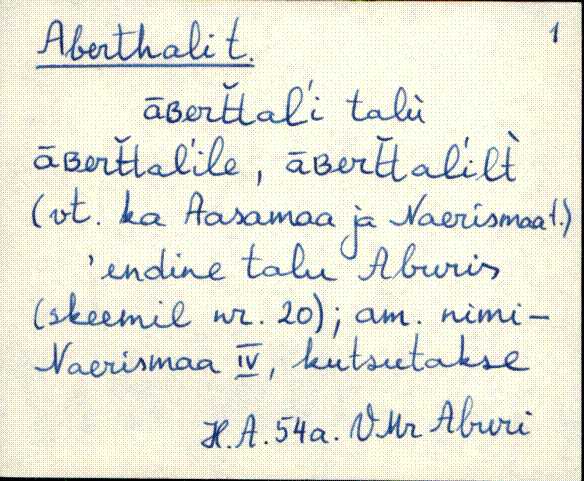 Aberthali t. 1
āʙerT̆tal´i talù
āʙerT̆tal´ile, āʙerT̆tal´ilt̀
(vt. ka Aasamaa ja Naerismaa t.)
'endine talu Aburis
(skeemil nr. 20); am. nimi-
Naerismaa IV, kutsutakse
H.A. 54a. VMr Aburi